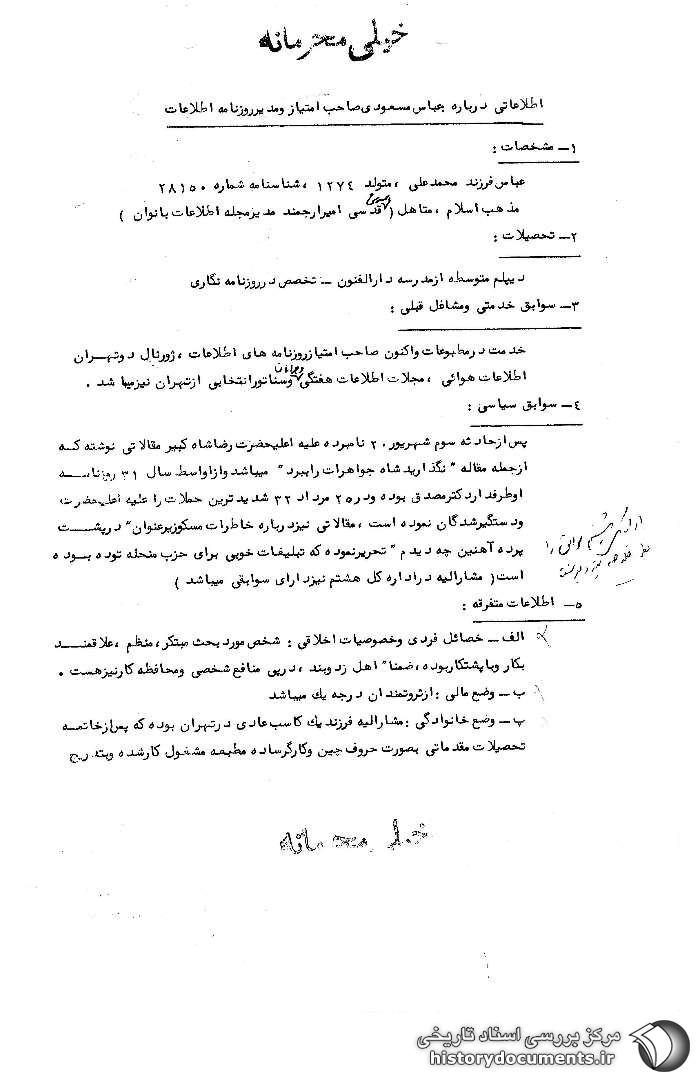 خیلی محرمانه
اطلاعاتی درباره عباس مسعودی صاحب امتیاز ومدیرروزنامه اطلاعات
۱ـ مشخصات :
عباس فرزند محمدعلی ، متولد ۱۲۷٤ ، شناسنامه شماره ۲۸۱۵۰
مذهب اسلام ، متاهل ( قدسی امیرارجمند مدیرمجله اطلاعات بانوان )
۲ـ تحصیلات :
دیپلم متوسطه ازمدرسه دارالفنون ـ تخصص درروزنامه نگاری
۳ـ سوابق خدمتی ومشاغل قبلی :
خدمت درمطبوعات واکنون صاحب امتیازروزنامه های اطلاعات ، ژورنال دوتهران
اطلاعات هوائی ، مجلات اطلاعات هفتگی وجوانان وسناتورانتخابی ازتهران نیزمیبا شد .
٤ـ سوابق سیاسی :
پس ازحادثه سوم شهریور ۲۰ نامبرده علیه اعلیحضرت رضاشاه کبیر مقالاتی نوشته که
ازجمله مقاله " نگذارید شاه جواهرات راببرد " میباشد وازاواسط سال ۳۱ روزنامه
اوطرفدار دکترمصدق بوده ودر۲۵ مرداد ۳۲ شدیدترین حملات را علیه اعلیحضرت
ودستگیرشدگان نموده است ، مقالاتی نیزدرباره خاطرات مسکوزیرعنوان " درپشت
پرده آهنین چه دیدم " تحریرنموده که تبلیغات خوبی برای حزب منحله توده بوده
است ( مشارالیه دراداره کل هشتم نیزدارای سوابقی میباشد )
۵ـ اطلاعات متفرقه :
الف ـ خصائل فردی وخصوصیات اخلاقی : شخص مورد بحث مبتکر ، منظم ، علاقمند
بکار وباپشتکاربوده ، ضمنا" اهل زدوبند ، درپی منافع شخصی ومحافظه کارنیزهست .
ب ـ وضع مالی : ازثروتمندان درجه یك میباشد
پ ـ وضع خانوادگی : مشارالیه فرزند یك کاسب عادی درتهران بوده که پس ازخاتمه
تحصیلات مقدماتی بصورت حروف چین وکارگرساده مطبعه مشغول کارشده وبتدریج
خیلی محرمانه
مرکز بررسی اسناد تاریخی
historydocuments.ir